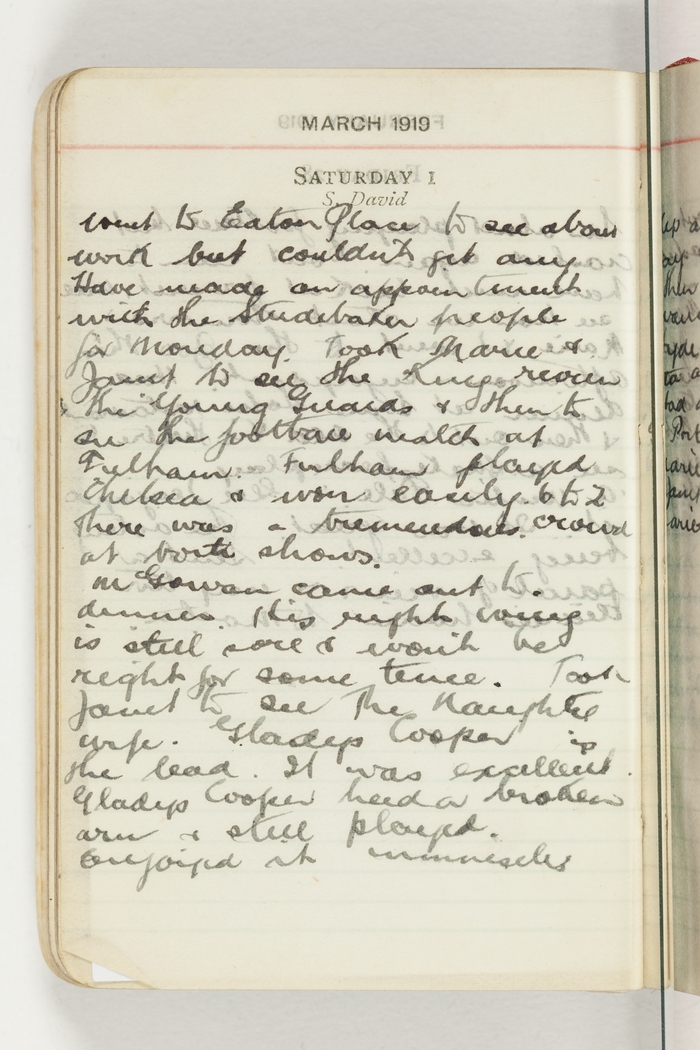 MARCH 1919
SATURDAY 1
S. David
went to Eaton Place to see about
work but couldn't get any
Have made an appointment
with the Studebaker people
for Monday. Took Marie &
Janet to see the King review
the Young Guards & then to
see the football match at
Fulham. Fulham played
Chelsea & won easily. 6 to 2
There was a tremendous crowd
at both shows.
McGowan came out to
dinner. His right wing
is still sore & won't be
right for some time. Took
Janet to see The Naughty
wife. Gladys Cooper is
the lead. It was excellent.
Gladys Cooper had a broken
arm & still played.
Enjoyed it immensely